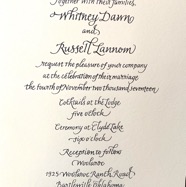 Together with their families,
Whitney Dawn
and
Russell Lannom
request the pleasure of your company
at the celebration of their marriage
the fourth of November two thousand seventeen
Cocktails at the Lodge
five o'clock
Ceremony at Clyde Lake
six o'clock
Reception to follow
Woolaroc
1925 Woolaroc Ranch Road
Bartlesville, Oklahoma